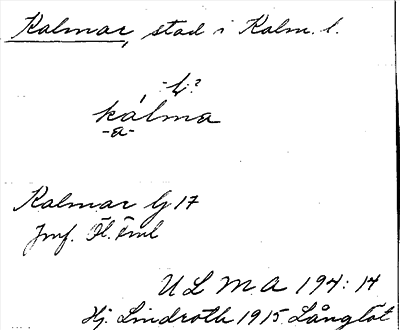 Kalmar, stad i Kalm. l.
-l-?
kálma
-a-
Kalmar Lj 17
Jmf. Öl.
U L M A 194: 14
Hj. Lindroth 1915. Långlöt